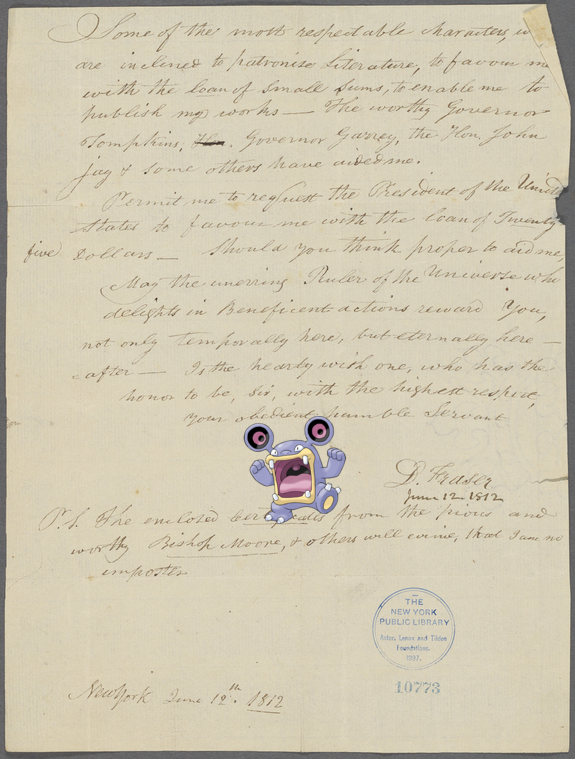 Some of the most respectable characters, w
are inclined to patronise Literature, to favour me
with the loan of small sums, to enable me to
publish my works — The worthy Governor
Tompkins, Hon. Governor Gerrey, the Hon. John
jay & some others have aided me.
Permit me to request the President of the United
States to favour me with the loan of Twenty
five Dollars — Should you think proper to aid me,
May the unerring Ruler of the Universe who
delights in Beneficent actions reward You,
not only temporally here, but eternally here —
- after — Is the hearty wish one, who has the
honor to be, Sir, with the highest respect,
your obedient humble Servant
D. Fraser
June 12 1812
P.S. The enclosed from the pious and
worthy Bishop Moore, & others will evince, that I am no
imposter
THE
NEW YORK
PUBLIC LIBRARY
Astor, Lenox and Tilden
Foundations.
1997.
10773
New York June 12th. 1812